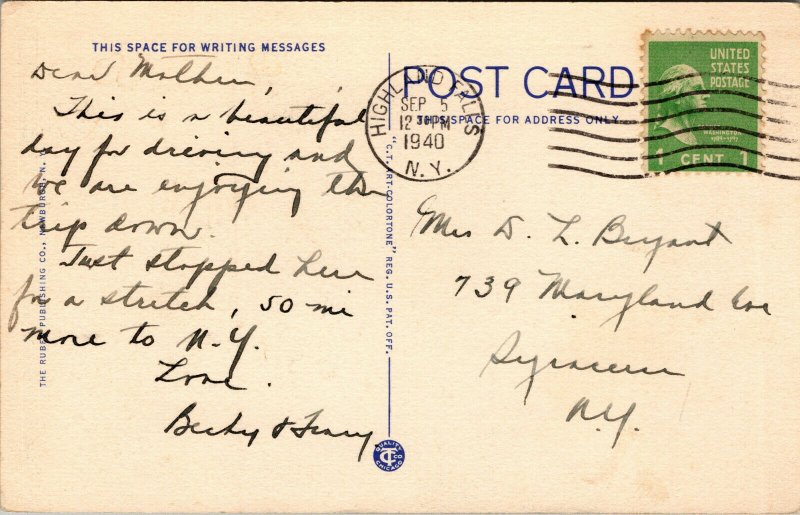 THIS SPACE FOR WRITING MESSAGES
Dear Mother,
This is a beautiful
day for driving and
we are enjoying the
trip down.
Just stopped here
for a stretch, 50 mi
more to N.Y.
Love.
Becky &
THE RUBEN PUBLISHING CO., NEWBURGH, N.Y.
"C.T. ART-COLORTONE" REG. U.S. PAT. OFF.
QUALITY
CT CO
CHICAGO
POST CARD
THIS SPACE FOR ADDRESS ONLY
HIGHLAND FALLS
SEP 5
12 PM
1940
N.Y.
UNITED
STATES
POSTAGE
WASHINGTON
1789-1797
1 CENT 1
Mrs D. L. Bryant
739 Maryland Ave
Syracuse
N.Y.